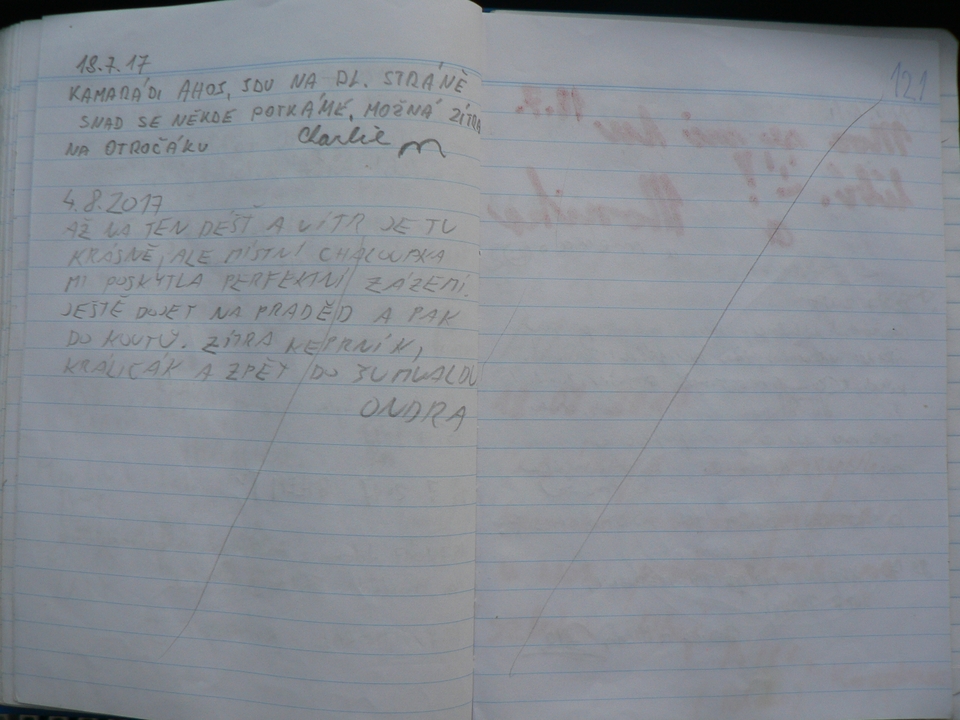 18.7.17
KAMARÁDI AHOJ, JDU NA DL. STRÁNĚ
SNAD SE NĚKDE POTKÁME, MOŽNÁ ZÍTRA
NA OTROČÁKU Charlie
4.8.2017
AŽ NA TEN DÉŠŤ A VÍTR JE TU
KRÁSNĚ, ALE MÍSTNÍ CHALOUPKA
MI POSKYTLA PERFEKTNÍ ZÁZEMÍ.
JEŠTĚ DOJET NA PRADĚD A PAK
DO KOUTŮ. ZÍTRA KEPRNÍK,
KRÁLIČÁK A ZPĚT DO ŠUMVALDU
ONDRA
121